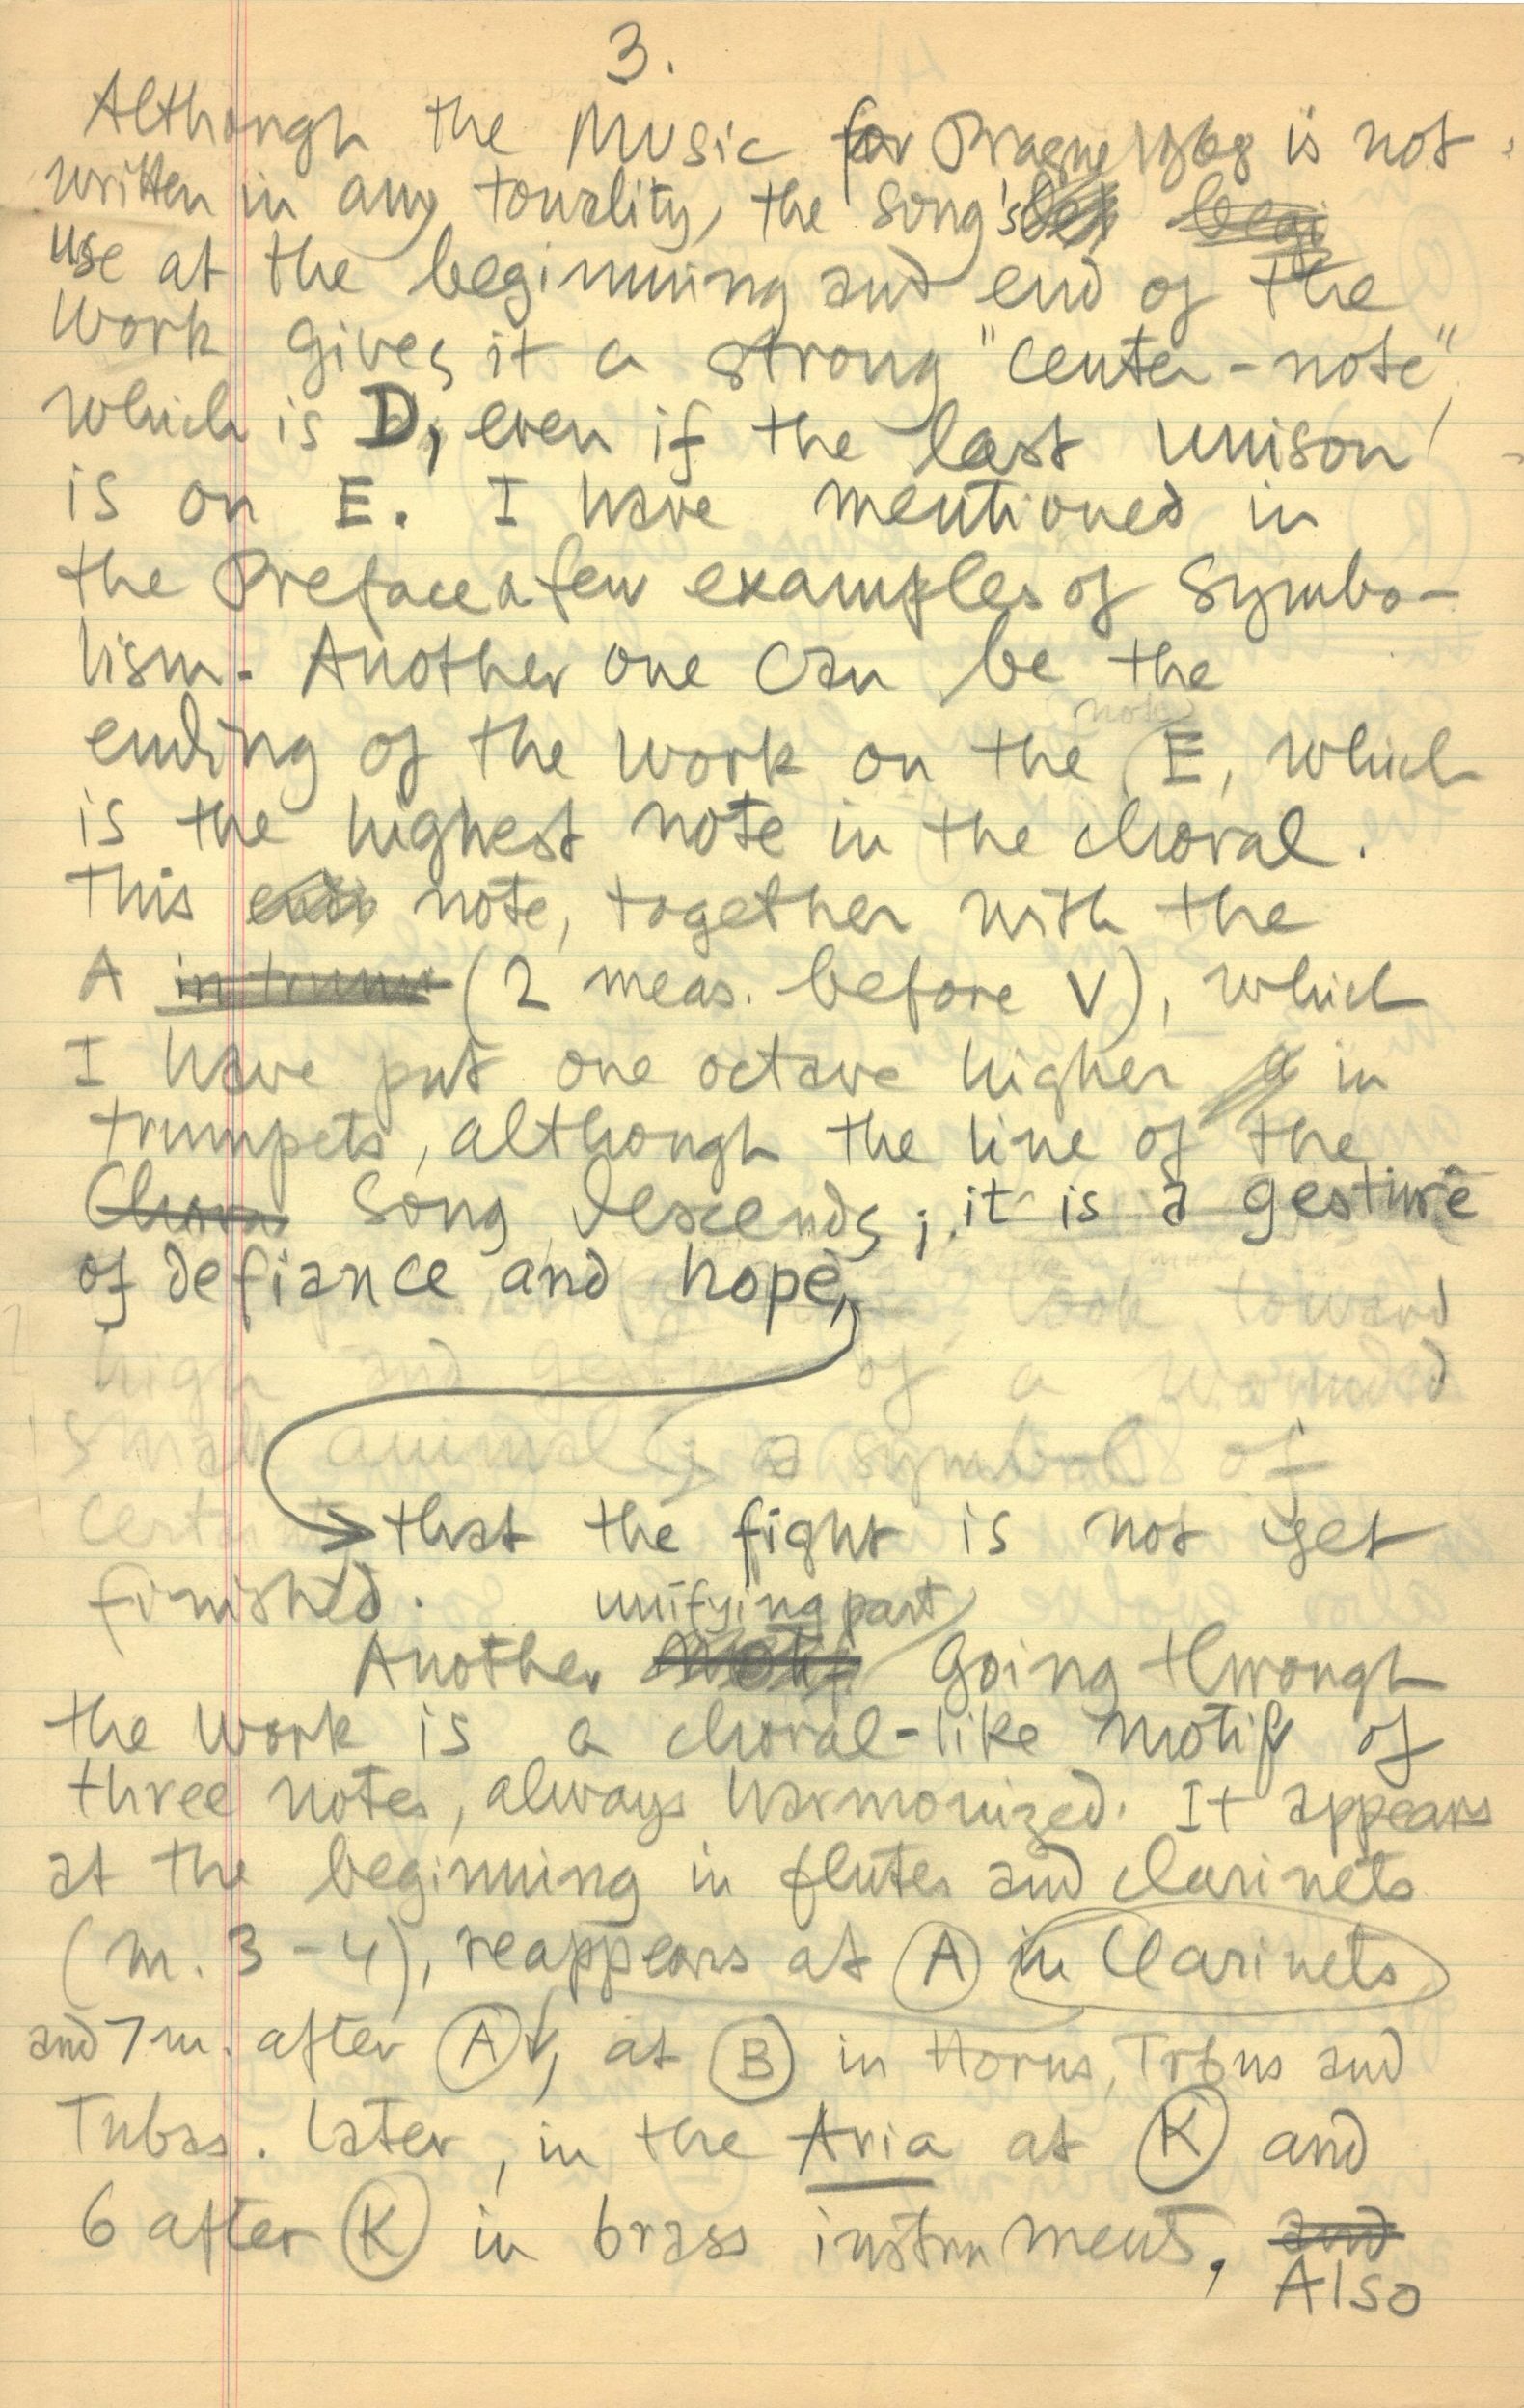 3.
Although the Music for Prague 1968 is not
written in any tonality, the song's
use at the beginning and end of the
work gives it a strong "center-note",
which is D, even if the last unison
is on E. I have mentioned in
the Preface a few examples of Symbo-
lism. Another one can be the
note
ending of the work on the E, which
is the highest note in the choral.
This note, together with the
A (2 meas. before V), which
I have put one octave higher in
trumpets, although the line of the
Song descends; it is a gesture
of defiance and hope,
look toward
high and gesture of a wounded
small animal, a symbol of
that the fight is not yet
finished.
unifying part
Another going through
the work is a choral-like motif of
three notes, always harmonized. It appears
at the beginning in flutes and clarinets
(m. 3-4), reappears at A in Clarinets
and 7 m. after A, at B in Horns, Trbns and
Tubas. Later, in the Aria at K and
6 after K in brass instruments, and
Also